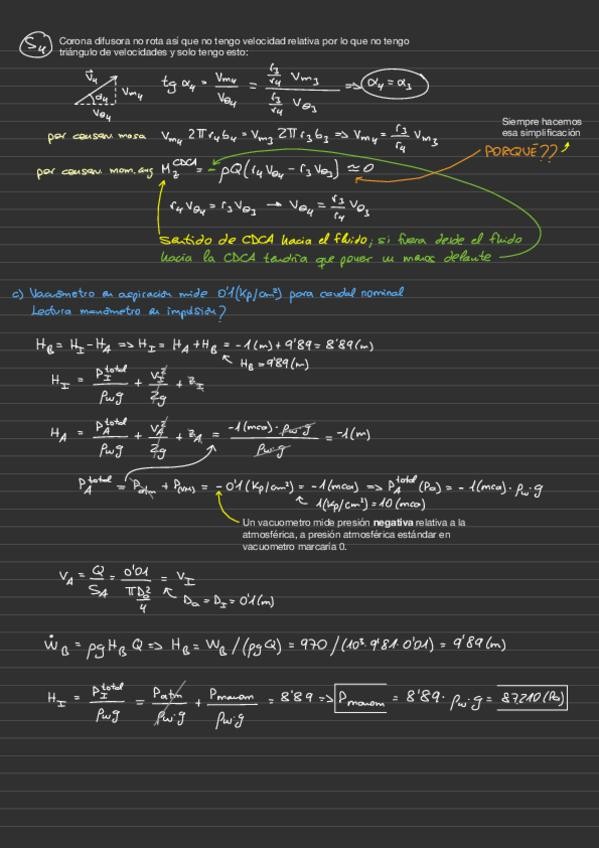 S4 Corona difusora no rota así que no tengo velocidad relativa por lo que no tengo
triángulo de velocidades y solo tengo esto:
V4 α4 Vm4 Vθ4
tg α4 = Vm4/Vθ4 = (r3/r4 Vm3)/(r3/r4 Vθ3) => α4 = α3
Siempre hacemos
esa simplificación
PORQUÉ??
por conserv masa Vm4 2π r4 b4 = Vm3 2π r3 b3 => Vm4 = r3/r4 Vm3
por conserv mom. ang Mz^CDCA = - ρQ(r4 Vθ4 - r3 Vθ3) ≈ 0
r4 Vθ4 = r3 Vθ3 → Vθ4 = r3/r4 Vθ3
Sentido de CDCA hacia el fluido; si fuera desde el fluido
hacia la CDCA tendría que poner un menos delante
c) Vacuómetro en aspiración mide 0'1 (Kp/cm²) para caudal nominal
Lectura manómetro en impulsión?
HB = HI - HA => HI = HA + HB = -1(m) + 9'89 = 8'89(m)
HB = 9'89(m)
HI = PI^total/ρw g + VI²/2g + zI
HA = PA^total/ρw g + VA²/2g + zA = -1(mca)·ρw·g/ρw·g = -1(m)
PA^total = Patm + P(vac) = - 0'1(Kp/cm²) = -1(mca) => PA^total(Pa) = -1(mca)·ρw·g
1(Kp/cm²) = 10(mca)
Un vacuometro mide presión negativa relativa a la
atmosférica, a presión atmosférica estándar en
vacuometro marcaría 0.
VA = Q/SA = 0'01/(πDa²/4) = VI
Da = DI = 0'1(m)
ẆB = ρg HB Q => HB = WB/(ρgQ) = 970/(10³·9'81·0'01) = 9'89(m)
HI = PI^total/ρw g = Patm/ρw·g + Pmanom/ρw·g = 8'89 => Pmanom = 8'89·ρw·g = 87210(Pa)